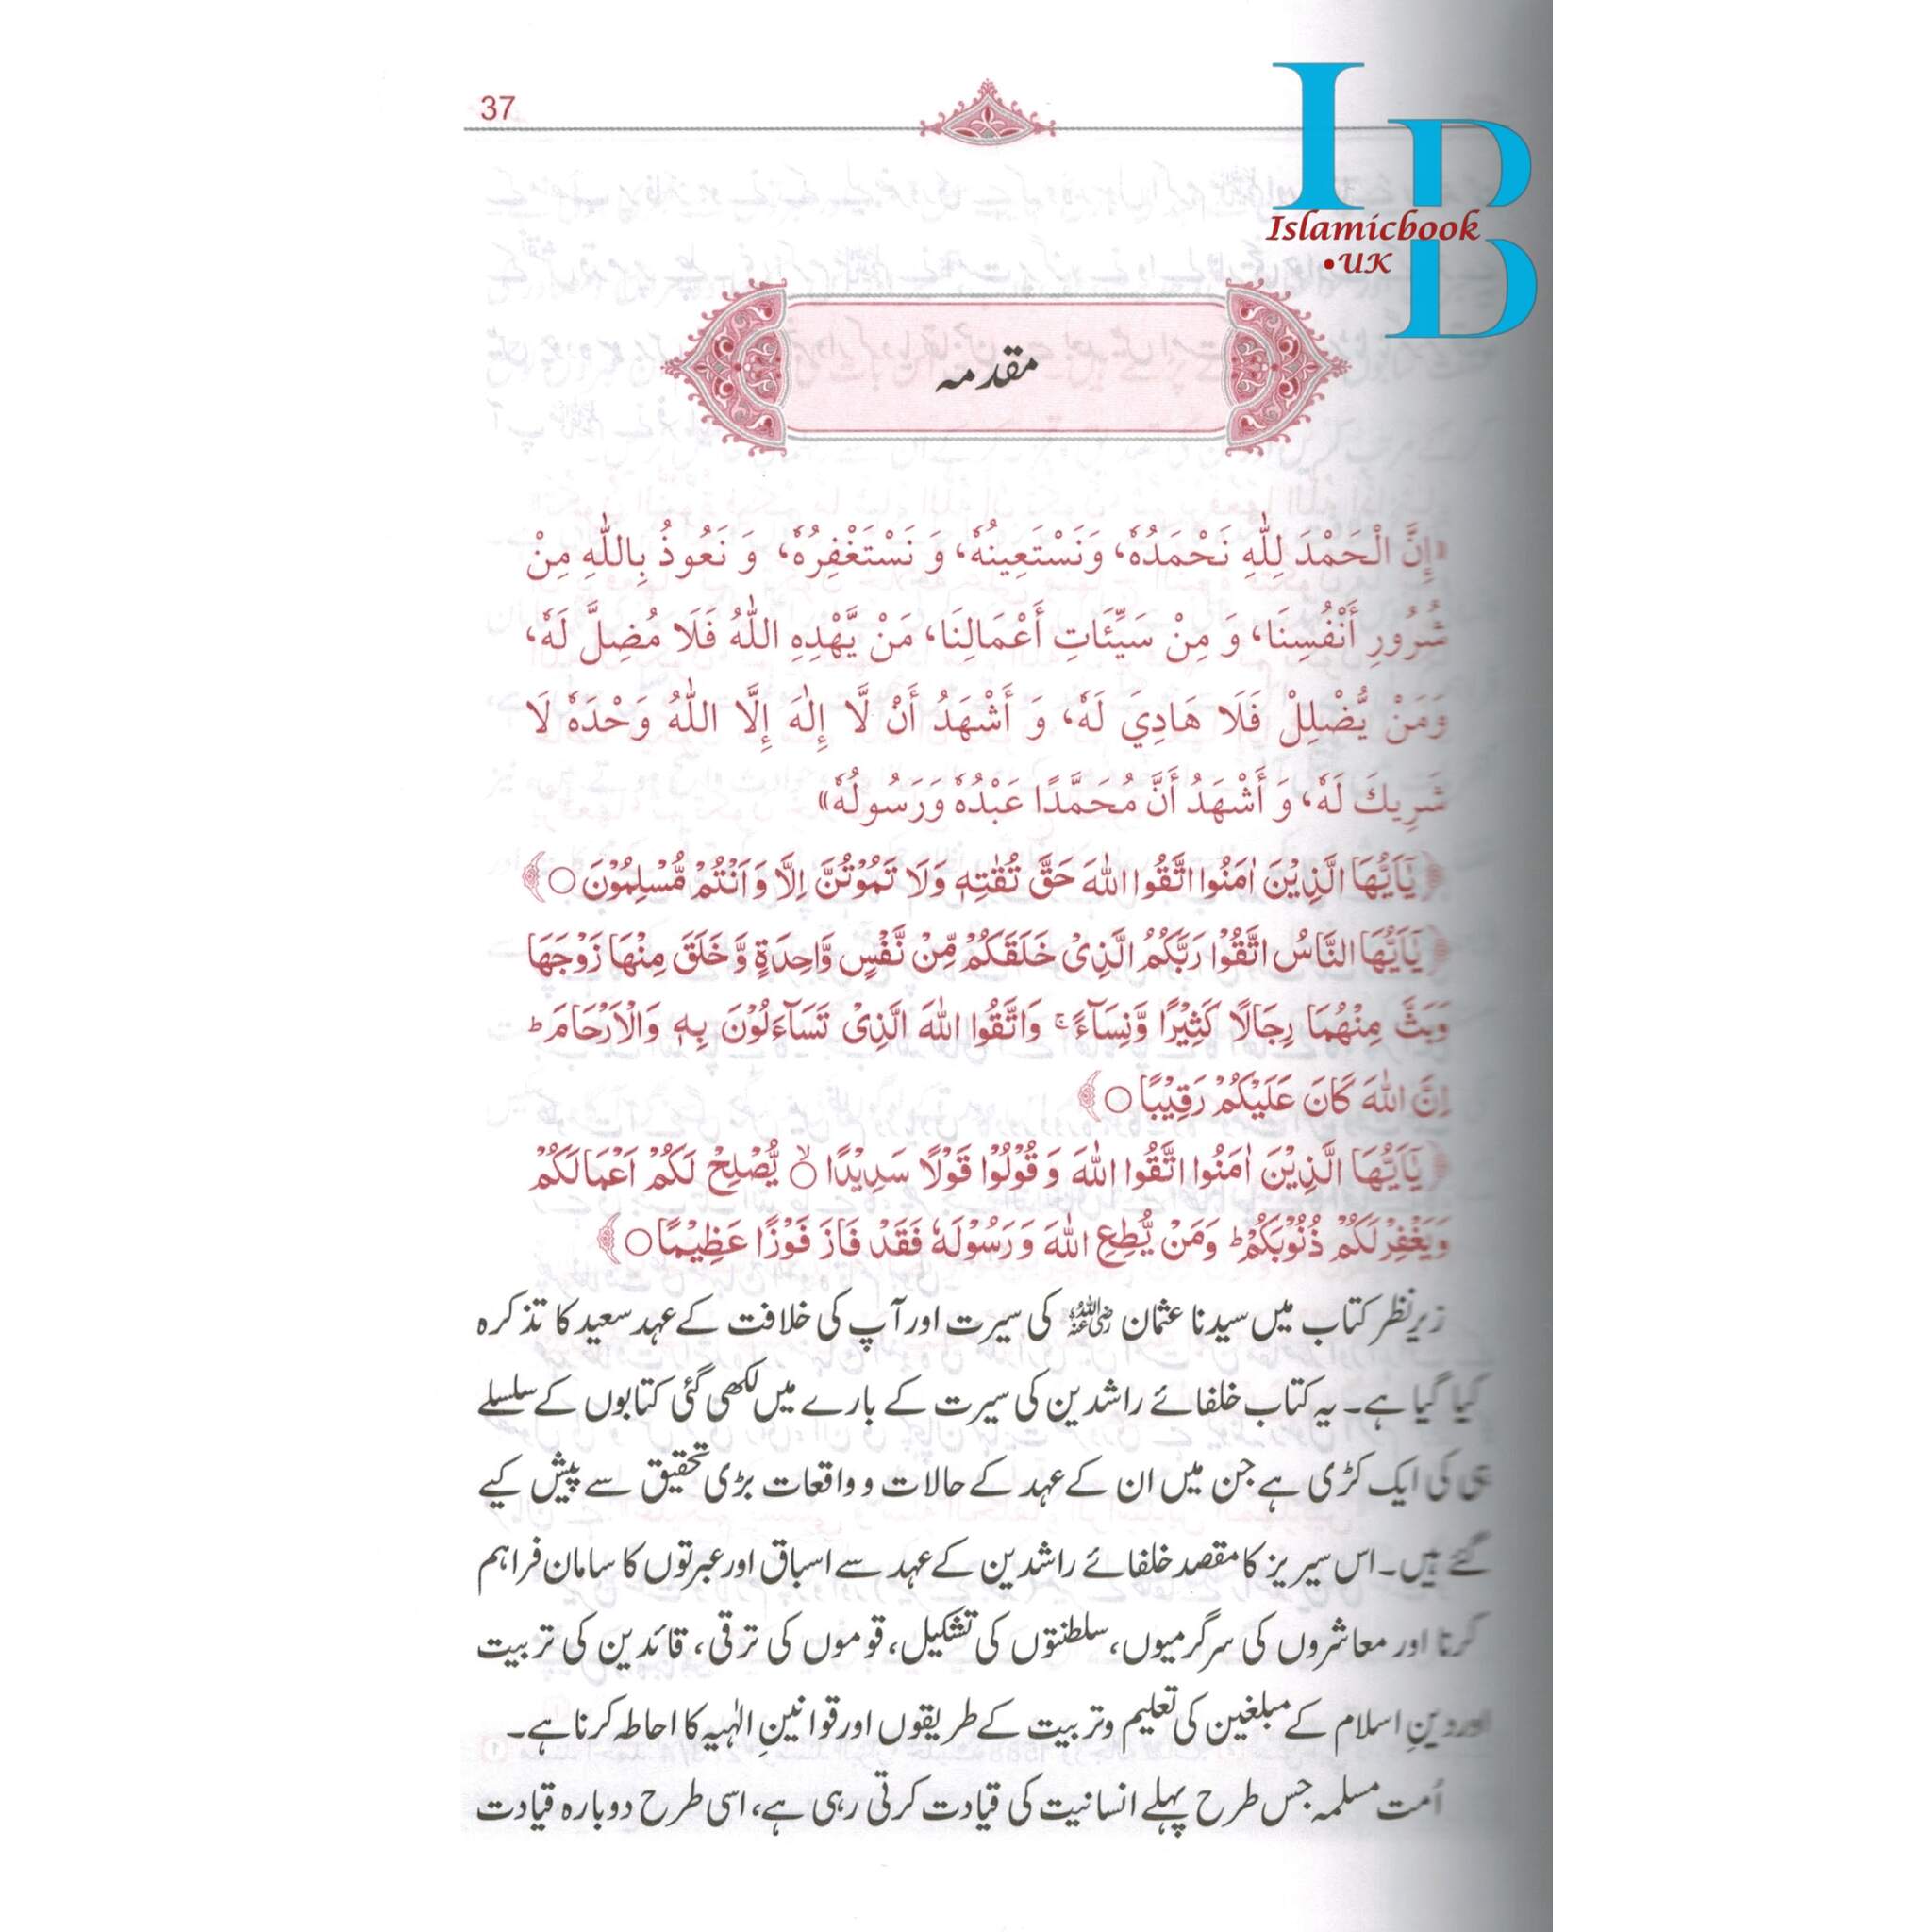 37
IBD
Islamicbook
•UK
مقدمہ
«إِنَّ الْحَمْدَ لِلّٰهِ نَحْمَدُهٗ، وَنَسْتَعِينُهٗ، وَ نَسْتَغْفِرُهٗ، وَ نَعُوذُ بِاللّٰهِ مِنْ
شُرُورِ أَنْفُسِنَا، وَ مِنْ سَيِّئَاتِ أَعْمَالِنَا، مَنْ يَّهْدِهِ اللّٰهُ فَلَا مُضِلَّ لَهٗ،
وَمَنْ يُّضْلِلْ فَلَا هَادِيَ لَهٗ، وَ أَشْهَدُ أَنْ لَّا إِلٰهَ إِلَّا اللّٰهُ وَحْدَهٗ لَا
شَرِيكَ لَهٗ، وَ أَشْهَدُ أَنَّ مُحَمَّدًا عَبْدُهٗ وَرَسُولُهٗ»
﴿يٰۤاَيُّهَا الَّذِيْنَ اٰمَنُوا اتَّقُوا اللّٰهَ حَقَّ تُقٰتِهٖ وَلَا تَمُوْتُنَّ اِلَّا وَاَنْتُمْ مُّسْلِمُوْنَ ○﴾
﴿يٰۤاَيُّهَا النَّاسُ اتَّقُوْا رَبَّكُمُ الَّذِيْ خَلَقَكُمْ مِّنْ نَّفْسٍ وَّاحِدَةٍ وَّخَلَقَ مِنْهَا زَوْجَهَا
وَبَثَّ مِنْهُمَا رِجَالًا كَثِيْرًا وَّنِسَآءً ۚ وَاتَّقُوا اللّٰهَ الَّذِيْ تَسَآءَلُوْنَ بِهٖ وَالْاَرْحَامَ ؕ
اِنَّ اللّٰهَ كَانَ عَلَيْكُمْ رَقِيْبًا ○﴾
﴿يٰۤاَيُّهَا الَّذِيْنَ اٰمَنُوا اتَّقُوا اللّٰهَ وَ قُوْلُوْا قَوْلًا سَدِيْدًا ○ۙ يُّصْلِحْ لَكُمْ اَعْمَالَكُمْ
وَيَغْفِرْ لَكُمْ ذُنُوْبَكُمْ ؕ وَمَنْ يُّطِعِ اللّٰهَ وَرَسُوْلَهٗ فَقَدْ فَازَ فَوْزًا عَظِيْمًا ○﴾
زیرنظر کتاب میں سیدنا عثمان رضی اللہ عنہ کی سیرت اور آپ کی خلافت کے عہد سعید کا تذکرہ
کیا گیا ہے۔ یہ کتاب خلفائے راشدین کی سیرت کے بارے میں لکھی گئی کتابوں کے سلسلے
ہی کی ایک کڑی ہے جن میں ان کے عہد کے حالات و واقعات بڑی تحقیق سے پیش کیے
گئے ہیں۔ اس سیریز کا مقصد خلفائے راشدین کے عہد سے اسباق اور عبرتوں کا سامان فراہم
کرنا اور معاشروں کی سرگرمیوں، سلطنتوں کی تشکیل، قوموں کی ترقی، قائدین کی تربیت
اور دینِ اسلام کے مبلغین کی تعلیم و تربیت کے طریقوں اور قوانینِ الٰہیہ کا احاطہ کرنا ہے۔
اُمت مسلمہ جس طرح پہلے انسانیت کی قیادت کرتی رہی ہے، اسی طرح دوبارہ قیادت